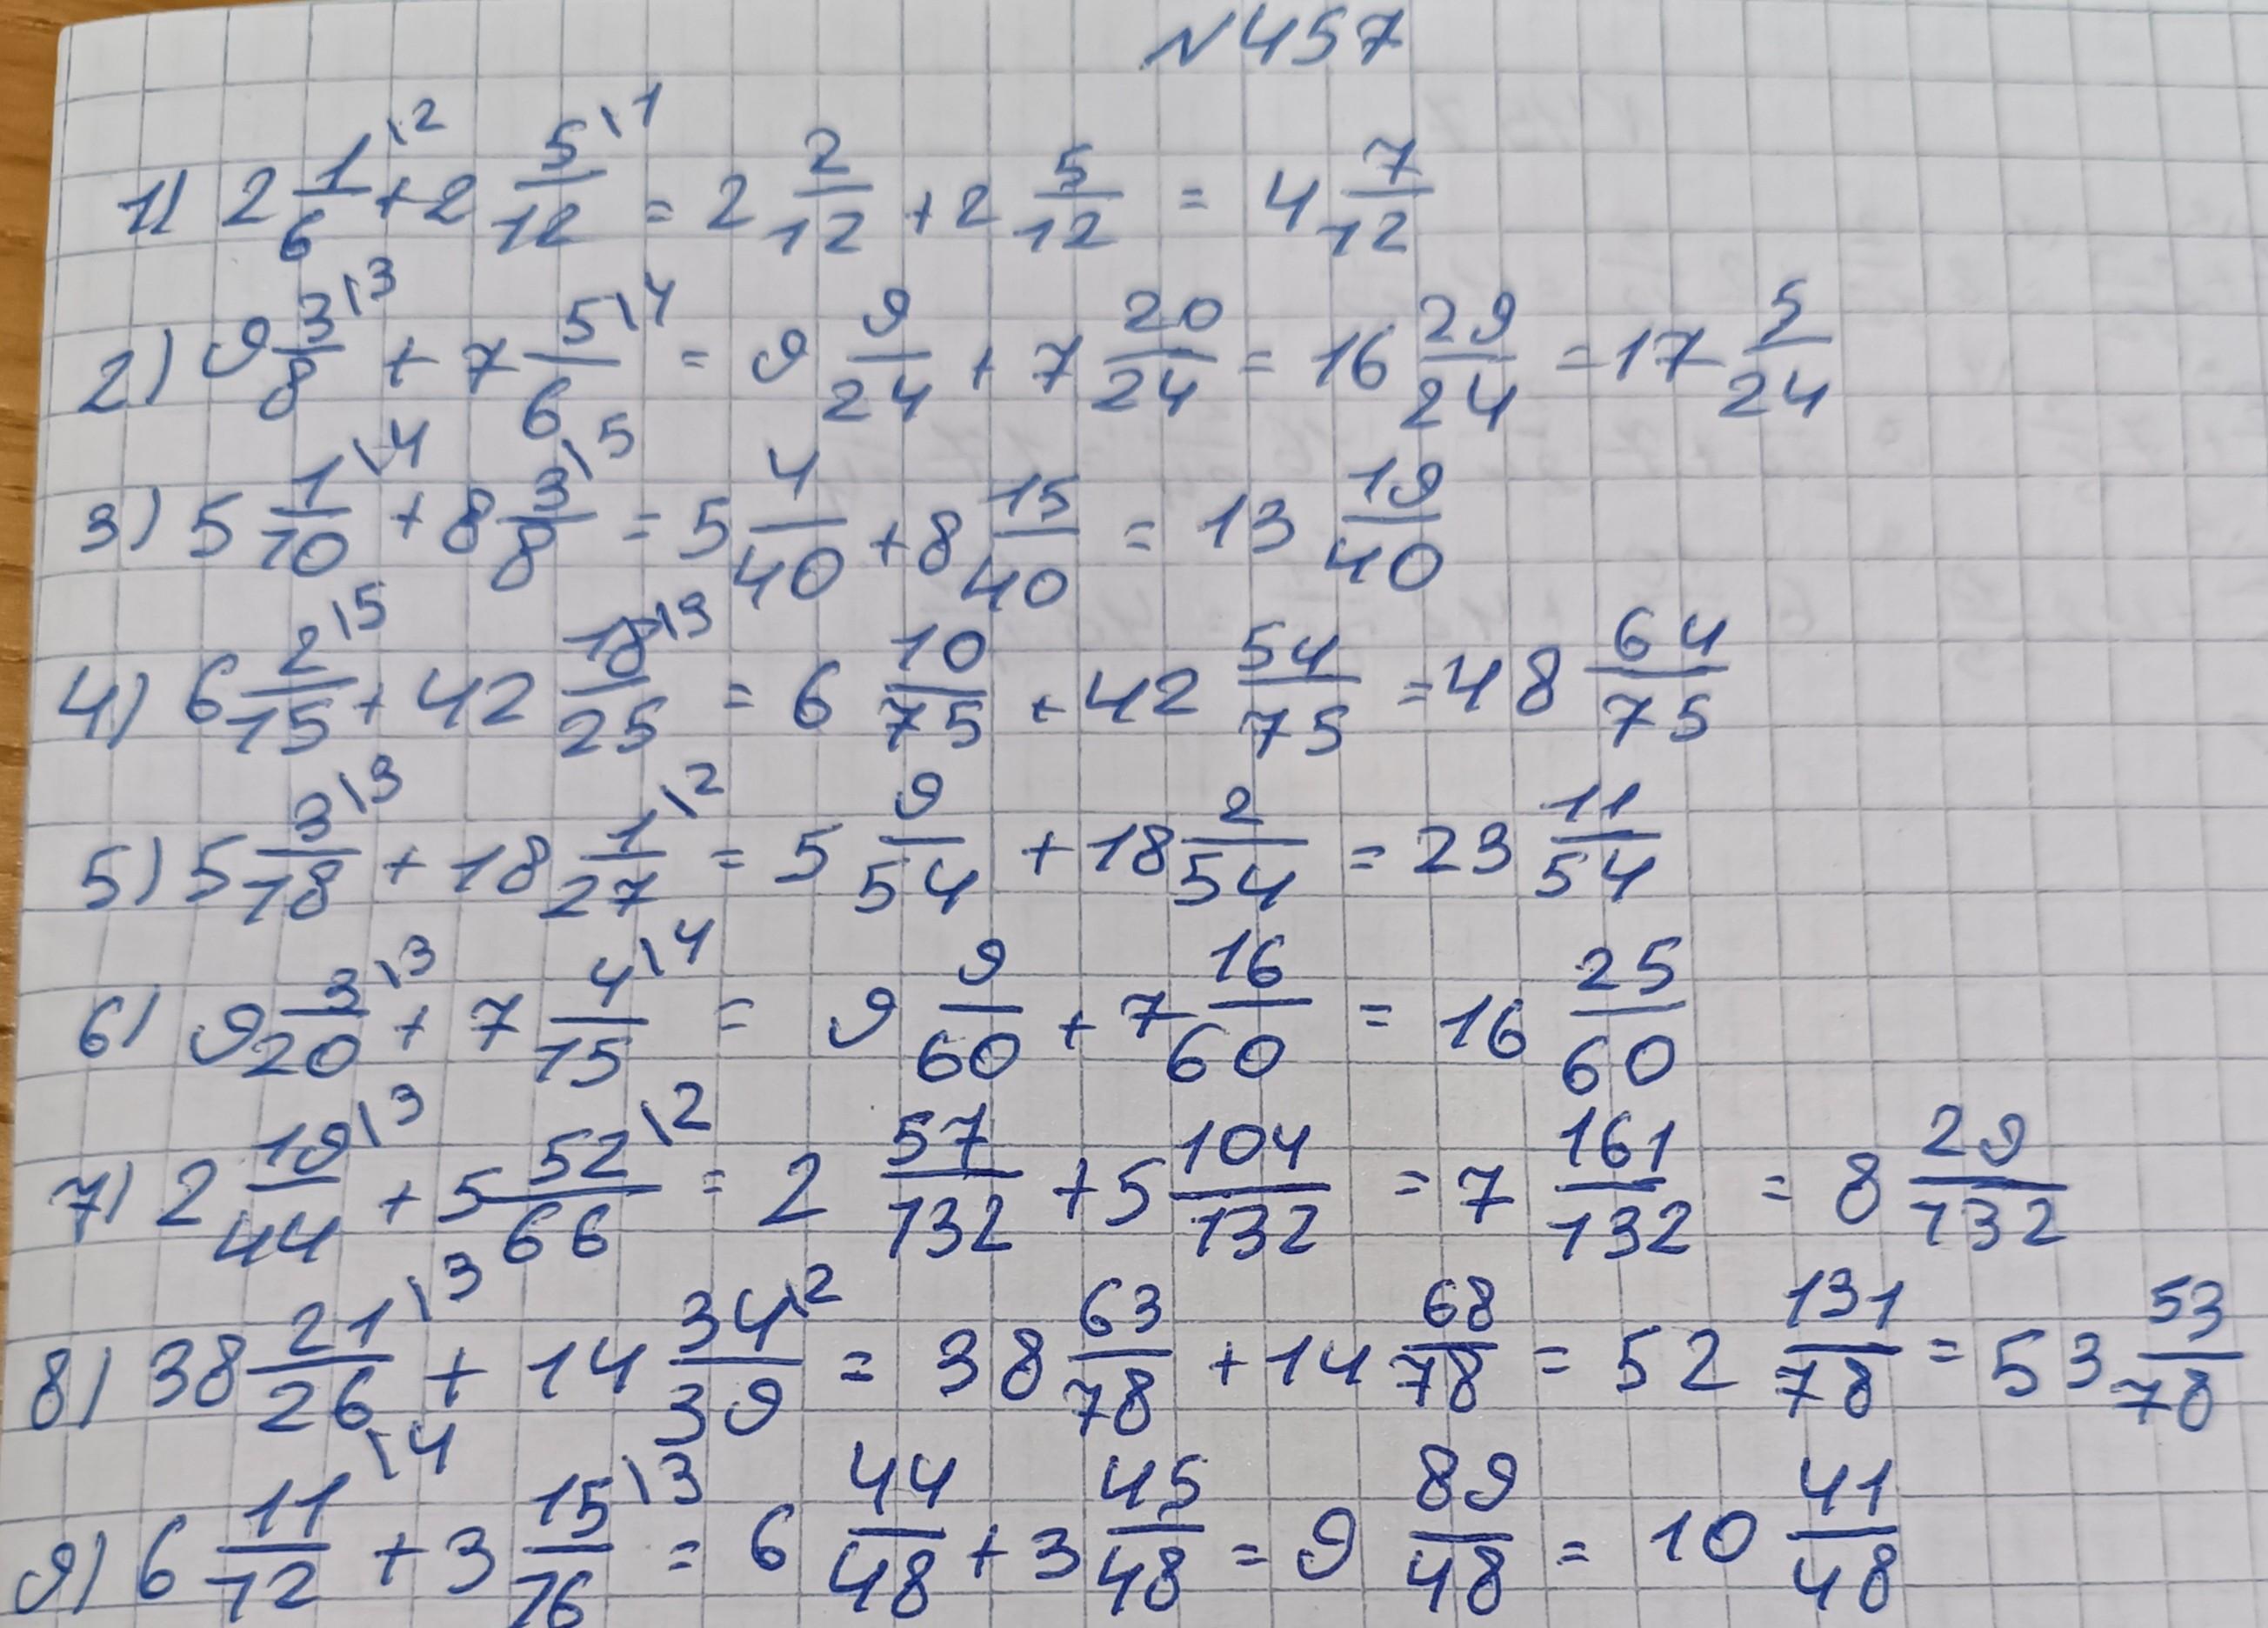 N457
1) 2 1/6 \2 + 2 5/12 \1 = 2 2/12 + 2 5/12 = 4 7/12
2) 9 3/8 \3 + 7 5/6 \4 = 9 9/24 + 7 20/24 = 16 29/24 = 17 5/24
3) 5 1/10 \4 + 8 3/8 \5 = 5 4/40 + 8 15/40 = 13 19/40
4) 6 2/15 \5 + 42 18/25 \3 = 6 10/75 + 42 54/75 = 48 64/75
5) 5 3/18 \3 + 18 1/27 \2 = 5 9/54 + 18 2/54 = 23 11/54
6) 9 3/20 \3 + 7 4/15 \4 = 9 9/60 + 7 16/60 = 16 25/60
7) 2 19/44 \3 + 5 52/66 \2 = 2 57/132 + 5 104/132 = 7 161/132 = 8 29/132
8) 38 21/26 \3 + 14 34/39 \2 = 38 63/78 + 14 68/78 = 52 131/78 = 53 53/78
9) 6 11/12 \4 + 3 15/16 \3 = 6 44/48 + 3 45/48 = 9 89/48 = 10 41/48